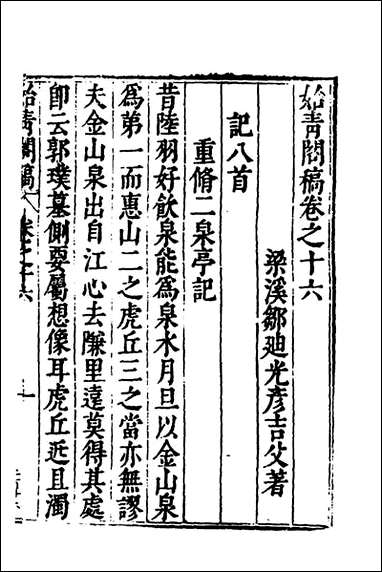 始青閣稿卷之十六
梁溪鄒迪光彦吉父著
記八首
重脩二泉亭記
昔陸羽好飲泉能爲泉水月旦以金山泉
爲第一而惠山二之虎丘三之當亦無謬
夫金山泉出自江心去隒里遠莫得其處
卽云郭璞墓側要屬想像耳虎丘近且濁
始青閣稿 卷之十六 一